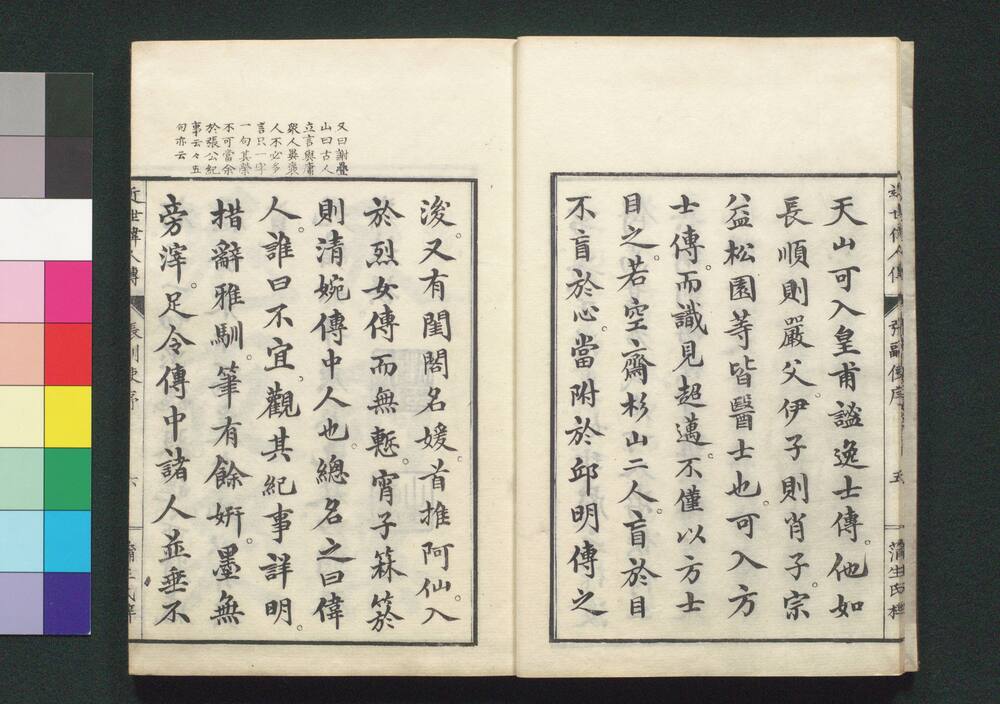 天山可入皇甫謐逸士傳。他如
長順則嚴父。伊子則肖子。宗
益松園等皆醫士也。可入方
士傳。而識見超邁。不僅以方士
目之。若空齋杉山二人。盲於目
不盲於心。當附於邱明傳之
浚。又有閨閤名媛。首推阿仙。入
於烈女傳而無慙。宵子箖箊
則清婉傳中人也。總名之曰偉
人。誰曰不宜。觀其紀事詳明。
措辭雅馴。筆有餘妍。墨無
旁滓。足令傳中諸人並垂不
又曰謝疊
山曰古人
立言與庸
衆人異褒
人不必多
言只一字
一句其榮
不可當余
於張公紀
事云々五
句亦云
近世偉人傳
六